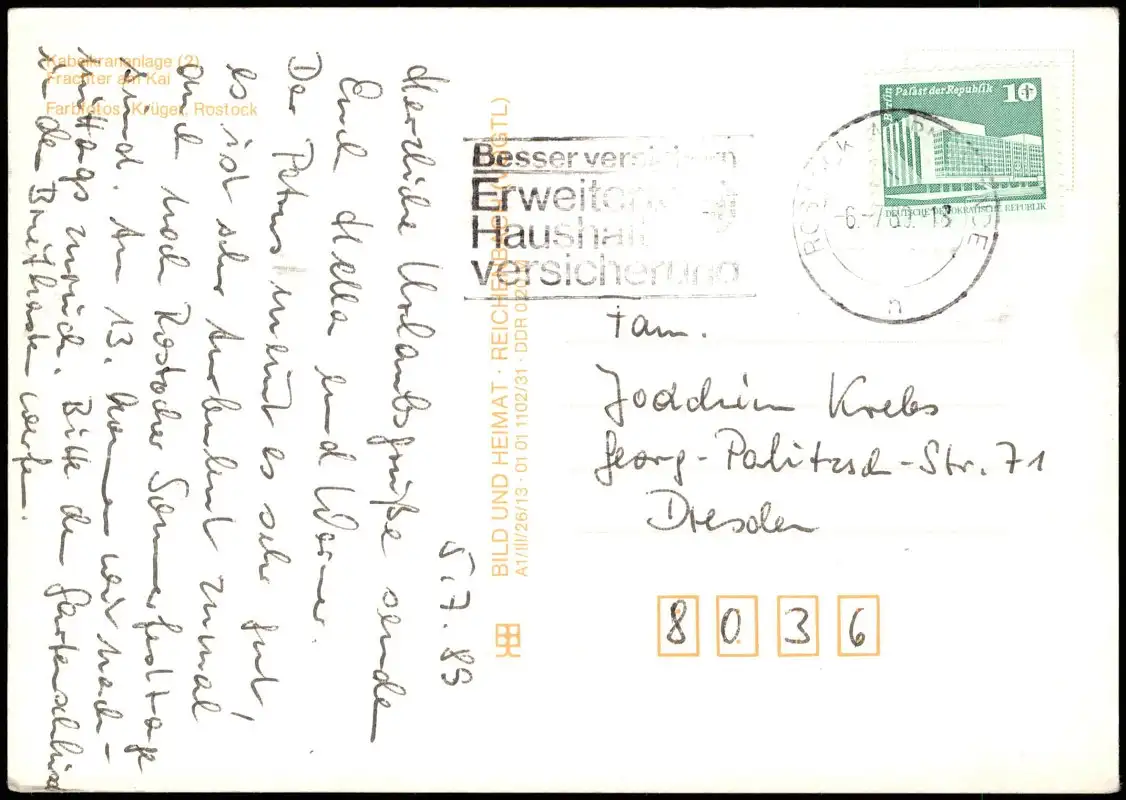 Kabelkrananlage (2)
Frachter am Kai
Farbfotos: Krüger, Rostock
5.7.89
Herzliche Urlaubsgrüße sende
Euch Hella und Werner.
Der Petrus meint es sehr gut,
es ist sehr turbulent zumal
auch noch Rostocher Sommerfesttage
sind. Am 13. kommen wir nach-
mittags zurück. Bitte den Gartenschlüssel
in den Briefkasten werfen.
BILD UND HEIMAT · REICHENBACH (VOGTL)
A1/III/26/13 · 01 01 1102/31 · DDR
Besser versichern
Erweiterte
Haushalt
versicherung
Berlin Palast der Republik 10
DEUTSCHE DEMOKRATISCHE REPUBLIK
ROSTOCK
-6.-7.89.-18
n
Fam.
Joachim Krebs
Georg-Palitzsch-Str. 71
Dresden
8 0 3 6